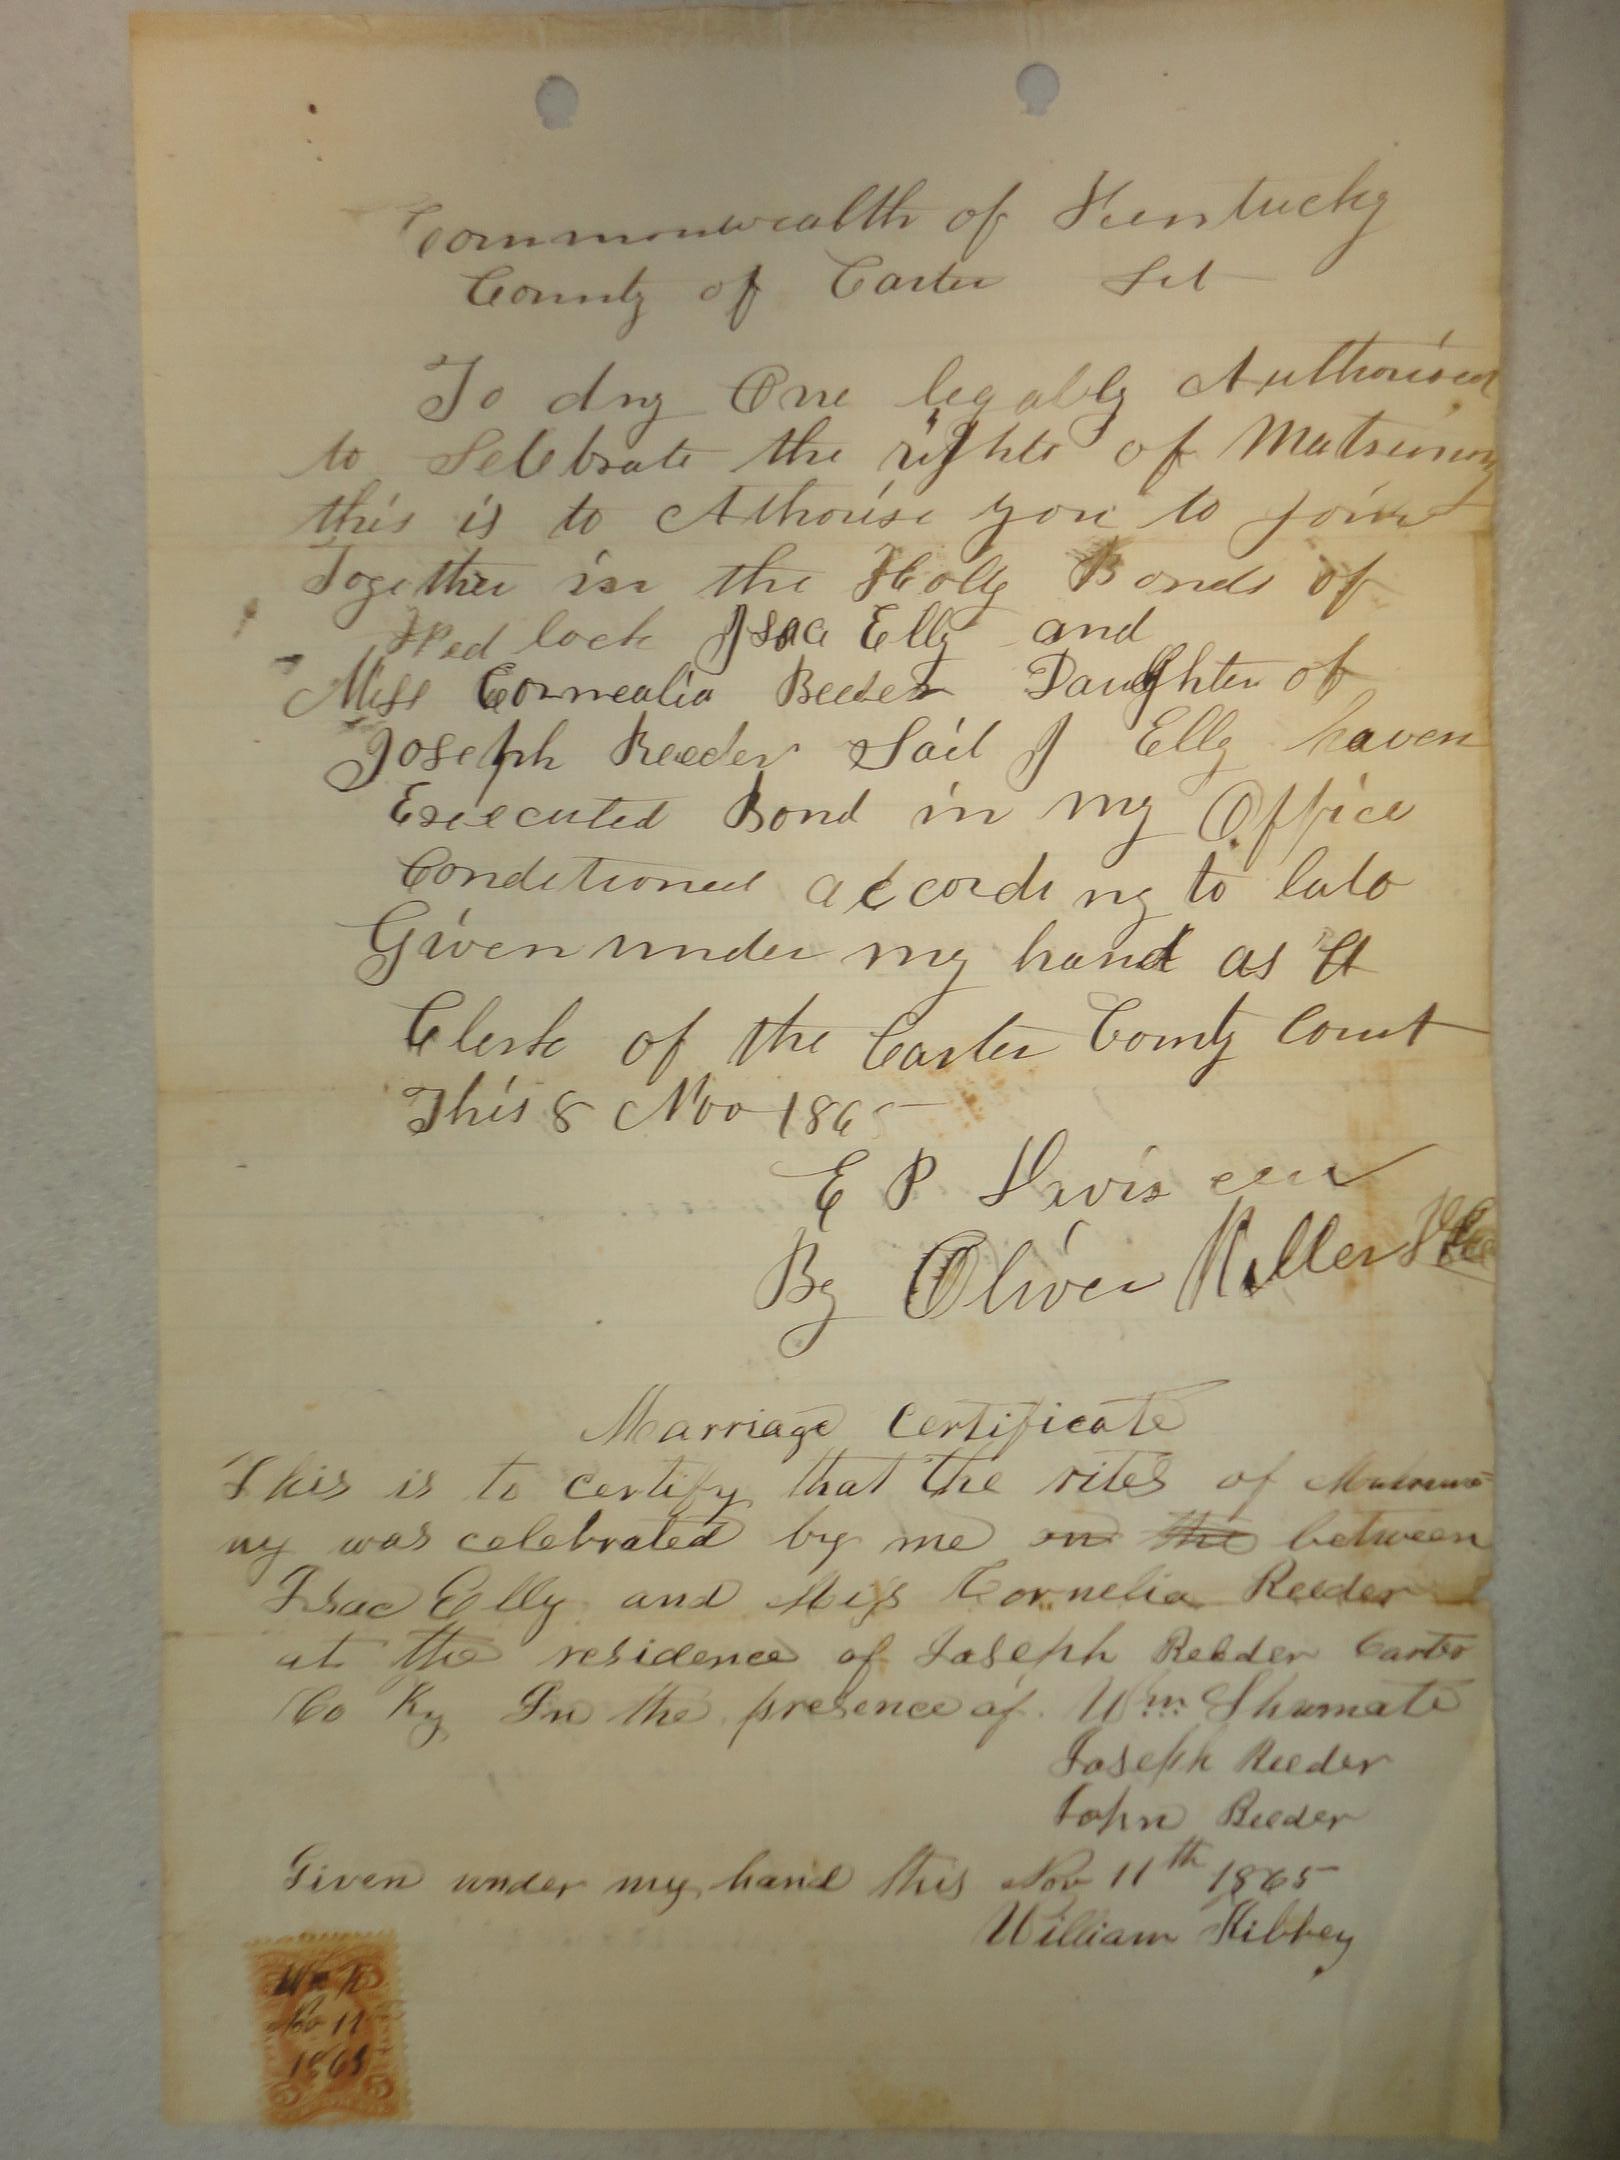 Commonwealth of Kentucky
County of Carter Sct
To any One legally Authorised
to Selebrate the rights of Matrimony
this is to Athorise you to join
Together in the Holy Bonds of
Wed lock Isaa Elly and
Miss Cornealia Reeder Daughter of
Joseph Reeder Said J Elly haven
Exiecuted Bond in my Office
Conditioned according to law
Given under my hand as
Clerk of the Carter County Court
This 8 Nov 1865
E P
By Oliver
Marriage Certificate
This is to certify that the rites of Matrimo-
ny was celebrated by me on the between
Isac Elly and Miss Cornelia Reeder
at the residence of Joseph Reeder Carter
Co Ky In the presence of Wm Shumate
Joseph Reeder
John Reeder
Given under my hand this Nov 11th 1865
William Kibbey
Wm K
Nov 11
1865